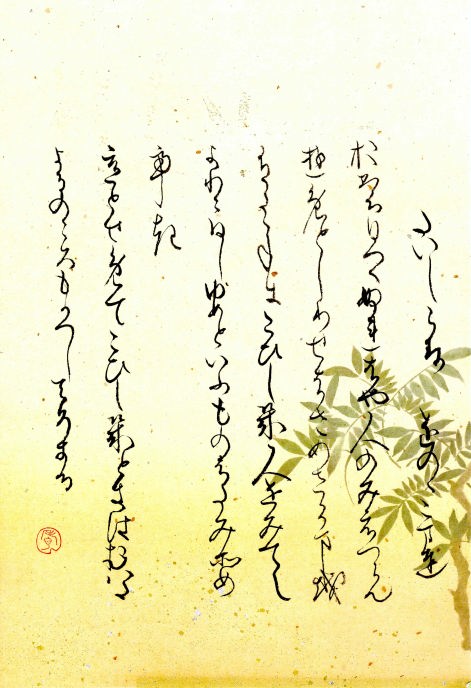 たいしらす をのゝこまち
おもひつゝぬれはや人のみえつらん
ゆめとしりせはさめさらましを
うたゝねにこひしき人をみてし
より ゆめといふものはたのみそめ
てき
いとせめてこひしきときはむは
よるのころもかへしてそきる